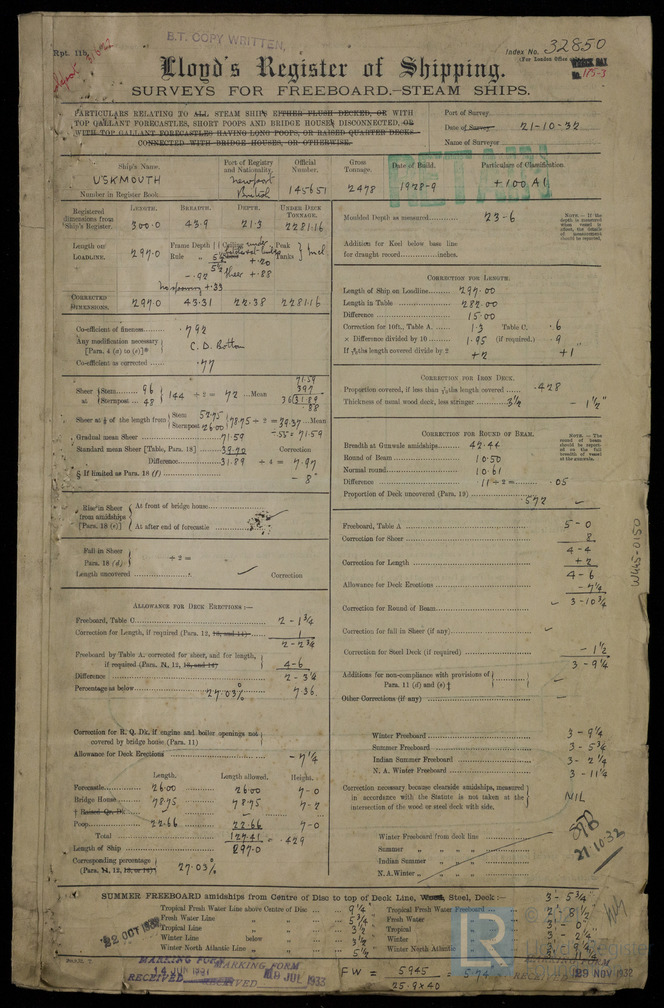 Rpt. 11b.
B.T. COPY WRITTEN,
Index No. 32850
(For London Office only)
Lloyd's Register of Shipping.
SURVEYS FOR FREEBOARD.—STEAM SHIPS.
PARTICULARS RELATING TO ALL STEAM SHIPS EITHER FLUSH DECKED, OR WITH
TOP GALLANT FORECASTLES, SHORT POOPS AND BRIDGE HOUSES DISCONNECTED, OR
WITH TOP GALLANT FORECASTLES HAVING LONG POOPS, OR RAISED QUARTER DECKS
CONNECTED WITH BRIDGE HOUSES, OR OTHERWISE.
Port of Survey
Date of Survey 21-10-32
Name of Surveyor
RETAIN
Ship's Name. Port of Registry and Nationality. Official Number. Gross Tonnage. Date of Build. Particulars of Classification.
USKMOUTH Newport British 145651 2478 1928-9 +100A1
Number in Register Book
LENGTH. BREADTH. DEPTH. UNDER DECK TONNAGE.
Registered dimensions from Ship's Register. 300.0 43.9 21.3 2281.16
Length on LOADLINE. 297.0 Frame Depth Ceiling Peak Tanks
Rule
-.92 Sheer +.88
No sparring +.33
CORRECTED DIMENSIONS. 297.0 43.31 22.38 2281.16
Co-efficient of fineness .792
Any modification necessary [Para. 4 (a) to (e)]* C.D. Bottom
Co-efficient as corrected .77
Sheer at Stem 96 Sternpost 48 144 ÷ 2 = 72 Mean
71.59
39.7
36 31.89
.88
Sheer at 1/8 of the length from Stem 52.75 Sternpost 26.00 78.75 ÷ 2 = 39.37 Mean
Gradual mean Sheer 71.59 ÷ .55 = 71.59
Standard mean Sheer [Table, Para. 18] 39.70 Correction
Difference 31.89 ÷ 4 = 7.97
§ If limited as Para. 18 (f) - 8"
Rise in Sheer from amidships [Para. 18 (e)] At front of bridge house
At after end of forecastle
Fall in Sheer Para. 18 (d) ÷ 2 =
Length uncovered Correction
ALLOWANCE FOR DECK ERECTIONS :—
Freeboard, Table C 2 - 1 3/4
Correction for Length, if required (Para. 12, 13, and 14) 1
2 - 2 3/4
Freeboard by Table A. corrected for sheer, and for length, if required (Para. 11, 12, 13, and 14) 4-6
Difference 2 - 3 1/4
Percentage as below 27.03% 7.36
Correction for R. Q. Dk. if engine and boiler openings not covered by bridge house. (Para. 11)
Allowance for Deck Erections - 7 1/4
Length. Length allowed. Height.
Forecastle 26.00 26.00 7-0
Bridge House 78.75 78.75 7-2
† Raised Qr. Dk
Poop 22.66 22.66 7-0
Total 127.41 = .429
Length of Ship 297.0
Corresponding percentage (Para. 11, 12, 13, or 14) 27.03%
Moulded Depth as measured 23-6
NOTE.—If the depth is measured when vessel is afloat, the details of measurement should be reported.
Addition for Keel below base line for draught record inches.
CORRECTION FOR LENGTH.
Length of Ship on Loadline 297.00
Length in Table 282.00
Difference 15.00
Correction for 10ft., Table A. 1.3 Table C. .6
× Difference divided by 10 1.95 (if required.) .9
If 6/10ths length covered divide by 2 +2 +1
CORRECTION FOR IRON DECK.
Proportion covered, if less than 7/10ths length covered .428
Thickness of usual wood deck, less stringer 3 1/2 - 1 1/2"
CORRECTION FOR ROUND OF BEAM.
Breadth at Gunwale amidships 42.44
Round of Beam 10.50
Normal round 10.61
Difference .11 ÷ 2 = .05
Proportion of Deck uncovered (Para. 19) .572
NOTE.—The round of beam should be reported on the full breadth of vessel at the gunwale.
Freeboard, Table A 5-0
Correction for Sheer 8
4-4
Correction for Length +2
4-6
Allowance for Deck Erections - 7 1/4
Correction for Round of Beam 3-10 3/4
Correction for fall in Sheer (if any)
Correction for Steel Deck (if required) - 1 1/2
3 - 9 1/4
Additions for non-compliance with provisions of Para. 11 (d) and (e) ‡
Other Corrections (if any)
Winter Freeboard 3 - 9 1/4
Summer Freeboard 3 - 5 3/4
Indian Summer Freeboard 3 - 2 1/4
N. A. Winter Freeboard 3 - 11 1/4
Correction necessary because clearside amidships, measured in accordance with the Statute is not taken at the intersection of the wood or steel deck with side. NIL
Winter Freeboard from deck line
Summer " " " "
Indian Summer " " "
N. A. Winter " " "
21.10.32
W445-0150
SUMMER FREEBOARD amidships from Centre of Disc to top of Deck Line, Wood, Steel, Deck :— 3 - 5 3/4"
Tropical Fresh Water Line above Centre of Disc 9 1/4" Tropical Fresh Water Freeboard 2 - 8 1/2"
Fresh Water Line " " 5 3/4 Fresh Water
Tropical Line " " 3 1/2 Tropical
Winter Line below " 3 1/2 Winter
Winter North Atlantic Line " " 5 1/2 Winter North Atlantic
22 OCT 1932
MARKING FORM
RECEIVED
MARKING FORM
RECEIVED JUL 1933
FW = 5945
25.9×40
29 NOV 1932
LR